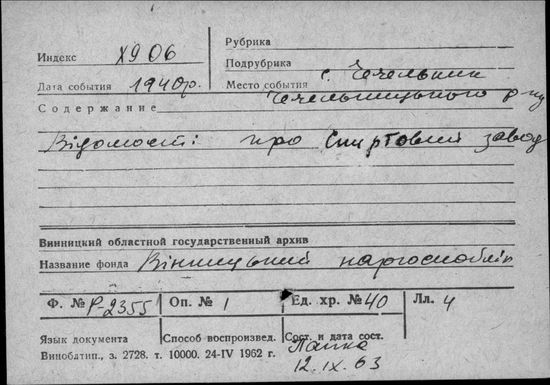 Рубрика
Индекс Х906
Подрубрика
Дата события 1940р.
Место события с. Чечельник
Чечельницького р-ну
Содержание
Відомості про спиртовий завод
Винницкий областной государственный архив
Название фонда Вінницький
Ф. № Р-2355 Оп. № 1 Ед. хр. № 40 Лл. 4
Язык документа Способ воспроизвед. Сост. и дата сост.
12.IX.63
Винобатип., з. 2728. т. 10000. 24-IV 1962 г.